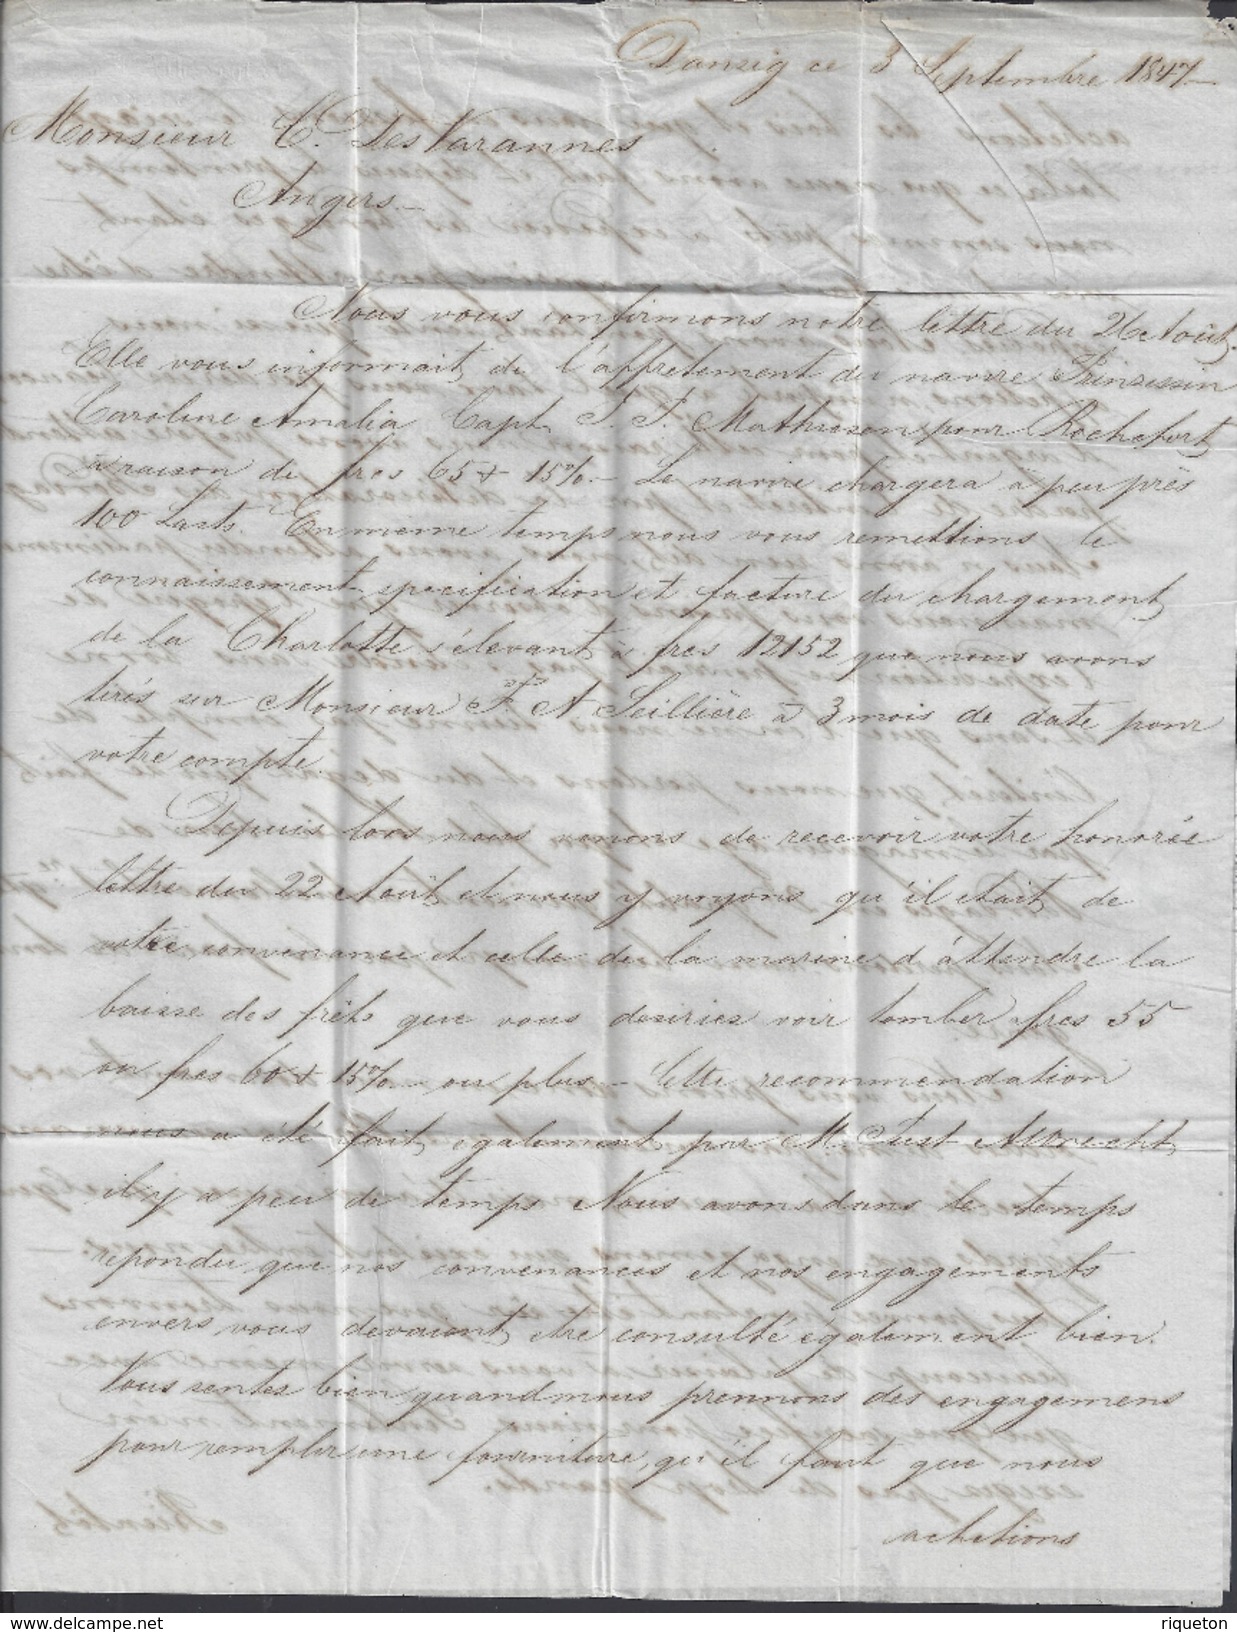 Danzig ce 3 Septembre 1847
Monsieur C. Des Varannes
Angers
Nous vous confirmons notre lettre du 26 Août.
Elle vous informait de l'affretement du navire Prinzessin
Caroline Amalia Capt. J. J. Mathiesen pour Rochefort
à raison de frcs 65 + 15% Le navire chargera à peu près
100 Lasts. En meme temps nous vous remettions le
connaissement specification et facture du chargement
de la Charlotte s'élevant à frcs 12152 que nous avons
tirés sur Monsieur F. A Seillière à 3 mois de date pour
votre compte.
Depuis lors nous venons de recevoir votre honorée
lettre du 22 Août et nous y voyons qu'il etait de
votre convenance et celle de la marine d'attendre la
baisse des frêts que vous desiriez voir tomber frcs 55
ou frcs 60 + 15% ou plus Cette recommendation
nous a été fait egalement par M. Just Albrecht
il y a peu de temps Nous avons dans le temps
repondu que nos convenances et nos engagements
envers vous devaient etre consulté également bien.
Vous sentes bien quand nous prennons des engagemens
pour remplir une fourniture, qu'il faut que nous
achetions
riqueton